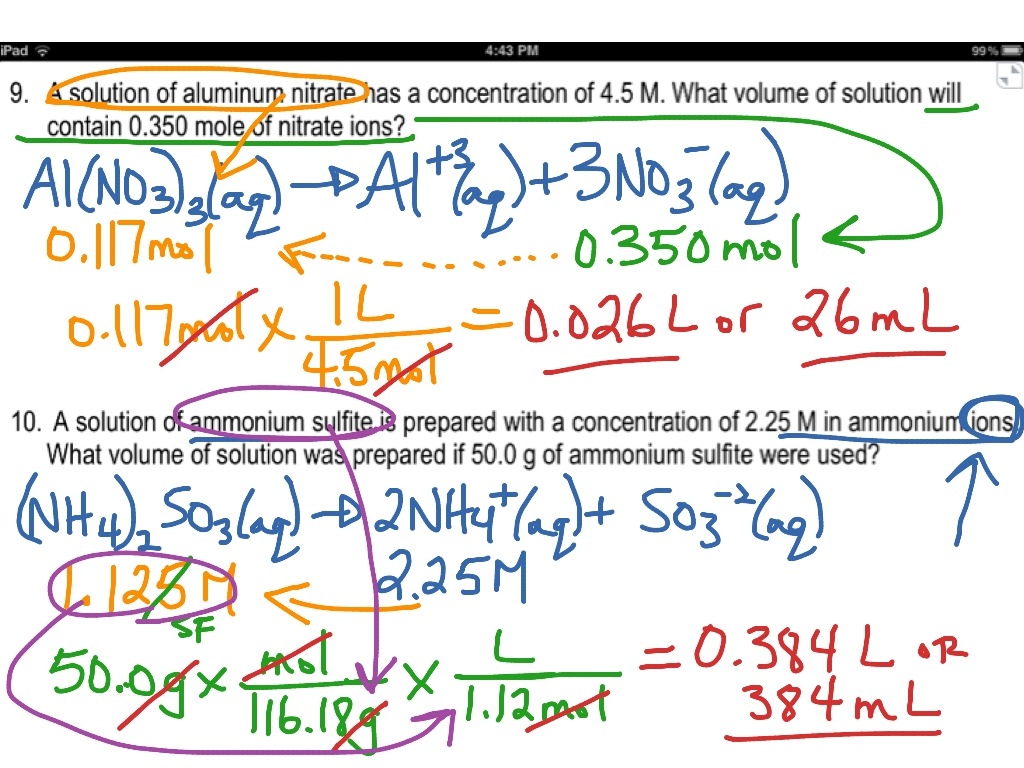 iPad 4:43 PM 99%
9. A solution of aluminum nitrate has a concentration of 4.5 M. What volume of solution will
contain 0.350 mole of nitrate ions?
Al(NO₃)₃(aq) → Al⁺³(aq) + 3NO₃⁻(aq)
0.117 mol 0.350 mol
0.117 mol x 1 L / 4.5 mol = 0.026 L or 26 mL
10. A solution of ammonium sulfite is prepared with a concentration of 2.25 M in ammonium ions
What volume of solution was prepared if 50.0 g of ammonium sulfite were used?
(NH₄)₂SO₃(aq) → 2NH₄⁺(aq) + SO₃⁻²(aq)
1.125 M 2.25 M
SF
50.0g x mol / 116.18g x L / 1.12 mol = 0.384 L OR
384 mL